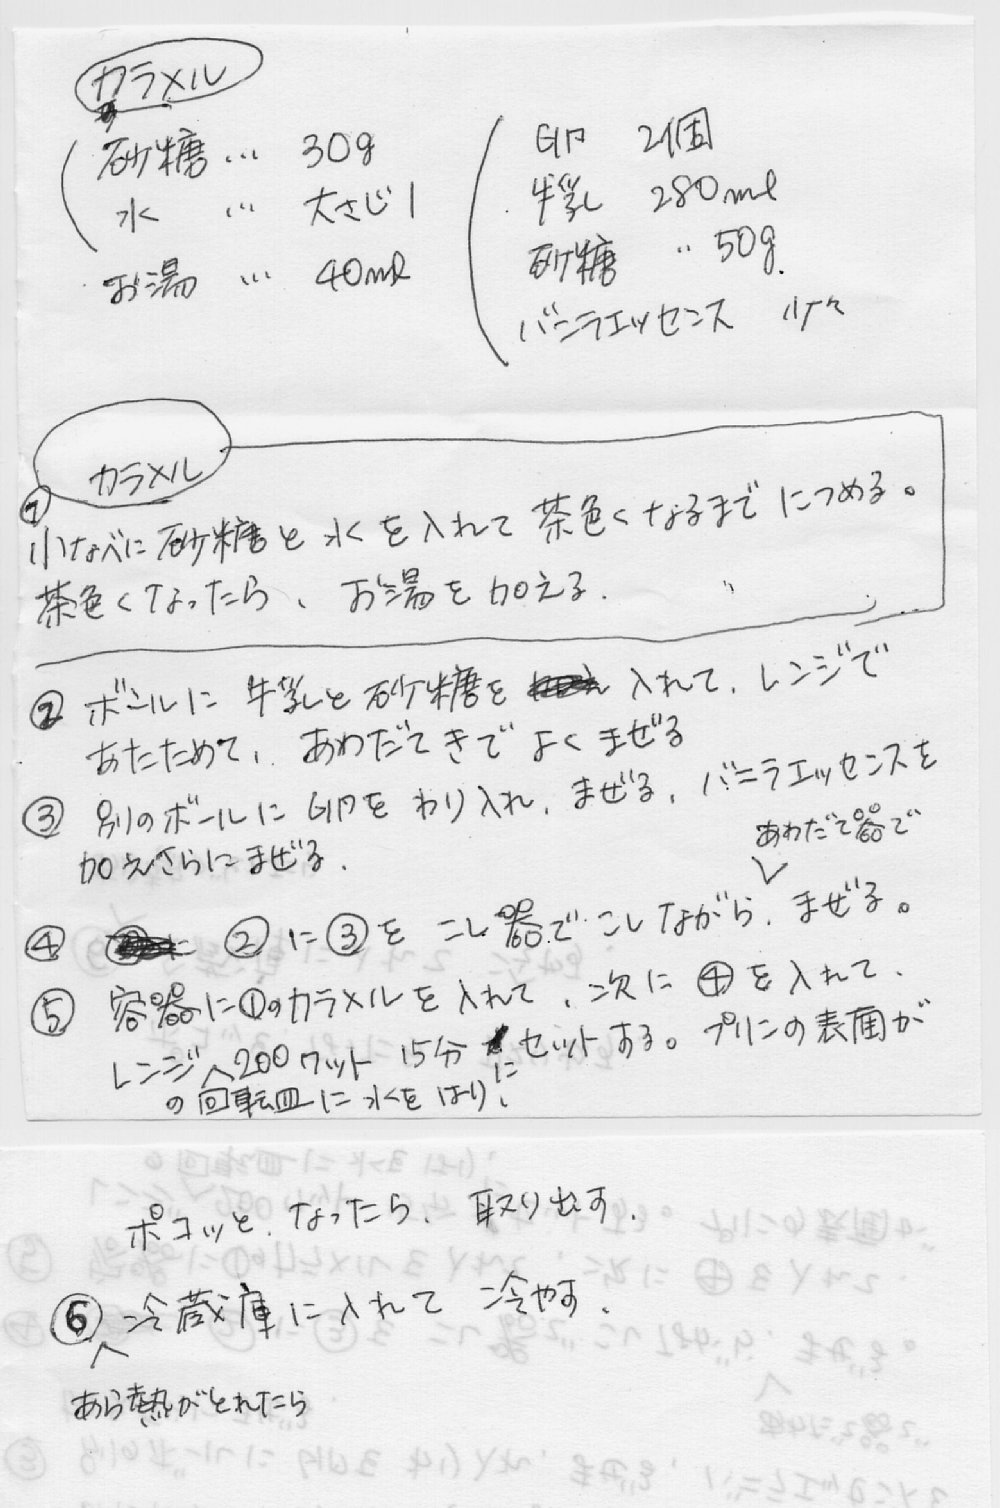 カラメル
砂糖 … 30g
水 … 大さじ1
お湯 … 40ml
卵 2個
牛乳 280ml
砂糖 ‥ 50g.
バニラエッセンス 少々
カラメル
① 小なべに砂糖と水を入れて茶色くなるまでにつめる。
茶色くなったら、お湯を加える.
② ボールに牛乳と砂糖を入れて、レンジで
あたためて、あわだてきでよくまぜる
③ 別のボールに卵をわり入れ、まぜる、バニラエッセンスを
加えさらにまぜる.
あわだて器で
④ ②に③をこし器でこしながら、まぜる。
⑤ 容器に①のカラメルを入れて、次に④を入れて、
レンジ 200ワット 15分にセットする。プリンの表面が
の回転皿に水をはり、
ポコッと、なったら、取り出す.
⑥ 冷蔵庫に入れて 冷やす.
あら熱がとれたら